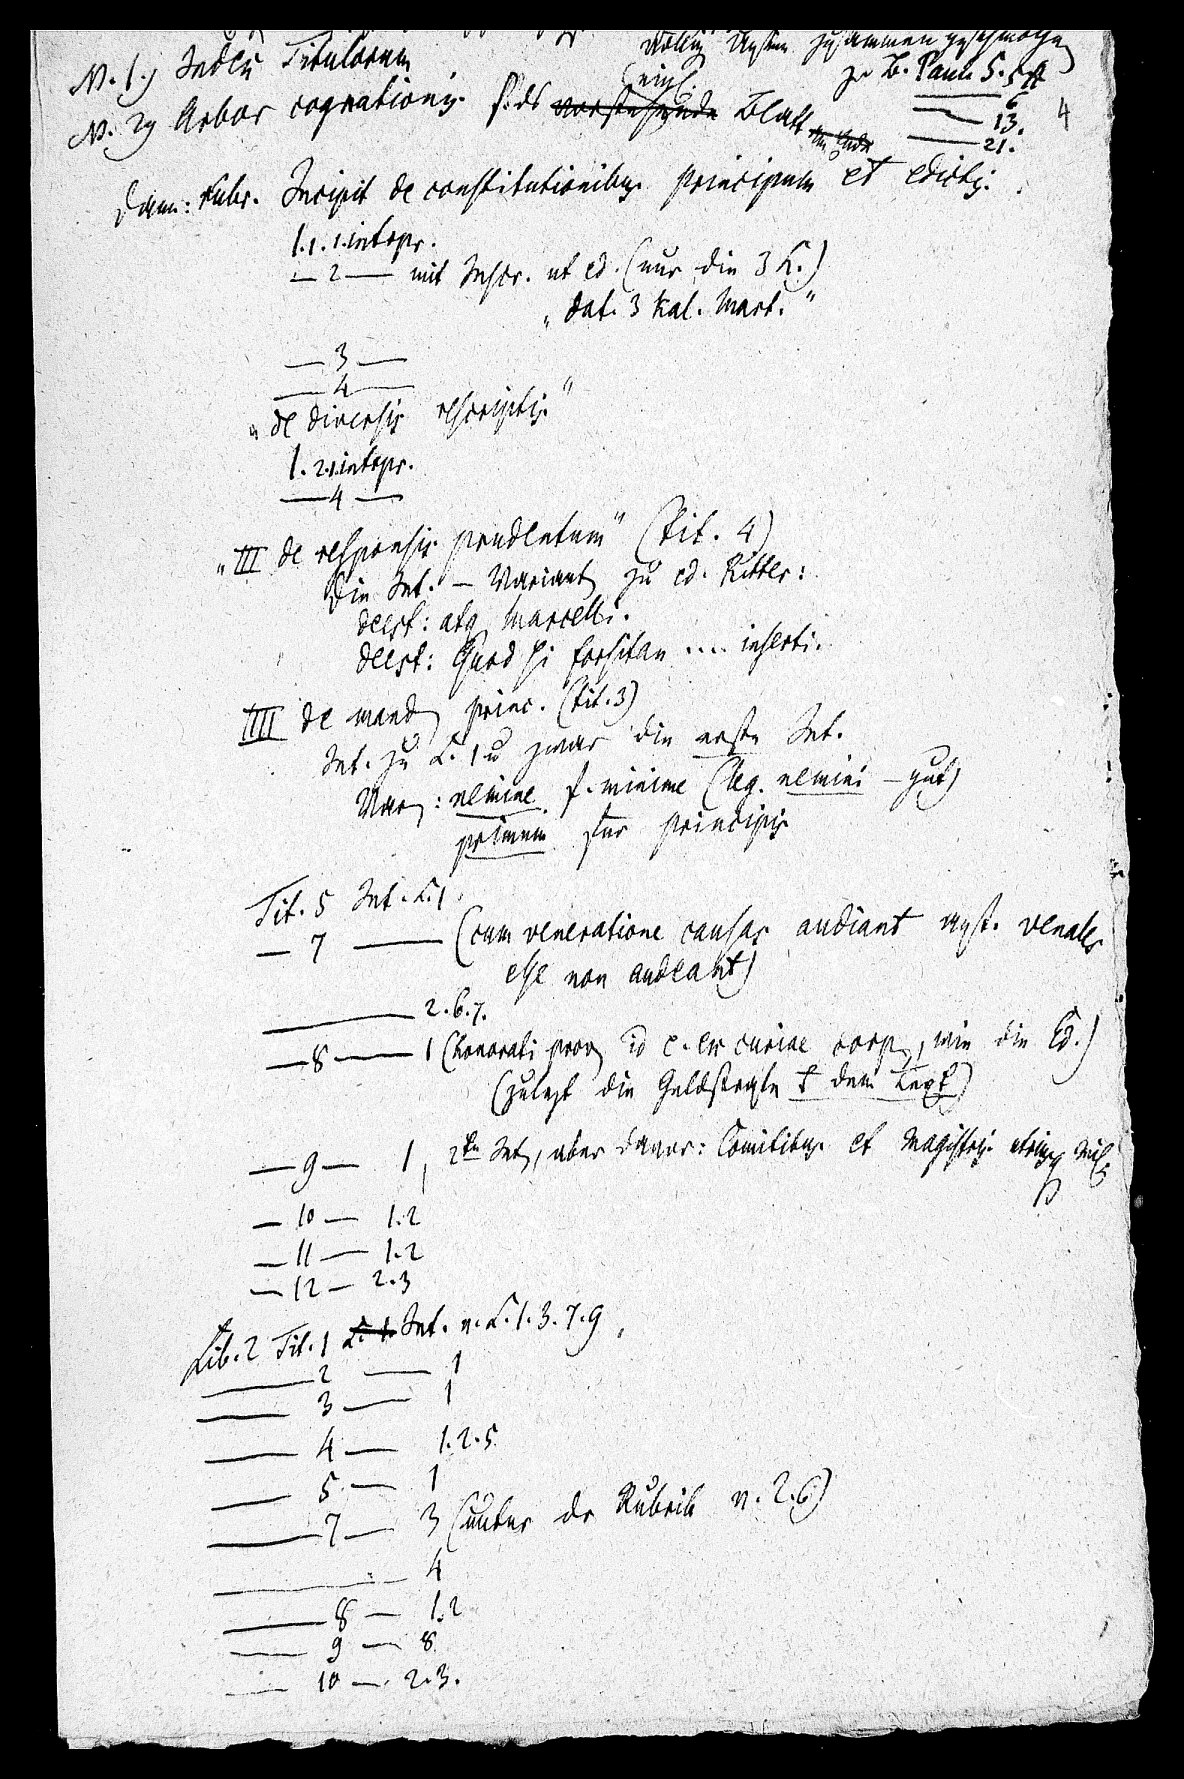 N. 1.) Index Titulorum
N. 2) Arbor cognationis. s. das vorstehende Blatt
zu B. Pauli 5. 5A
6
13.
21.
4
Dann: Rubr. Incipit de constitutionibus principum et edictis.
1. 1. 1. interpr.
— 2 — mit Inscr. ut ed. (nur die 3 K.)
„dat. 3 Kal. Mart.“
— 3 —
— 4 —
„de diversis rescriptis“
1. 2. 1. interpr.
— 4 —
„III de responsis prudentum“ (tit. 4)
Die Int. — Variant. zu ed. Ritter:
deest: atq. Marcelli.
deest: Quod si forsitan .... inserti.
IIII de mand. princ. (tit. 3)
Int. zu L. 1 u zwar die erste Int.
Var.: nemine f. minime (leg. nemini — gut)
primum für principis
Tit. 5 Int. L. 1.
— 7 — (cum veneratione causas audiant venales
esse non audeant)
— 2. 6. 7.
— 8 — 1 (honorati prov. id e. ex curiae corp., wie die Ed.)
(zuletzt die Geldstrafe f dem Text)
— 9 — 1, 2te Int., aber davor: Comitibus et Magistris utriusq. Mil.
— 10 — 1. 2
— 11 — 1. 2
— 12 — 2. 3
Lib. 2 Tit. 1 L. 1. Int. v. L. 1. 3. 7. 9
— 2 — 1
— 3 — 1
— 4 — 1. 2. 5
— 5 — 1
— 7 — 3 (unter der Rubrik v. 2. 6)
— 4
— 8 — 1. 2
— 9 — 8
— 10 — 2. 3.